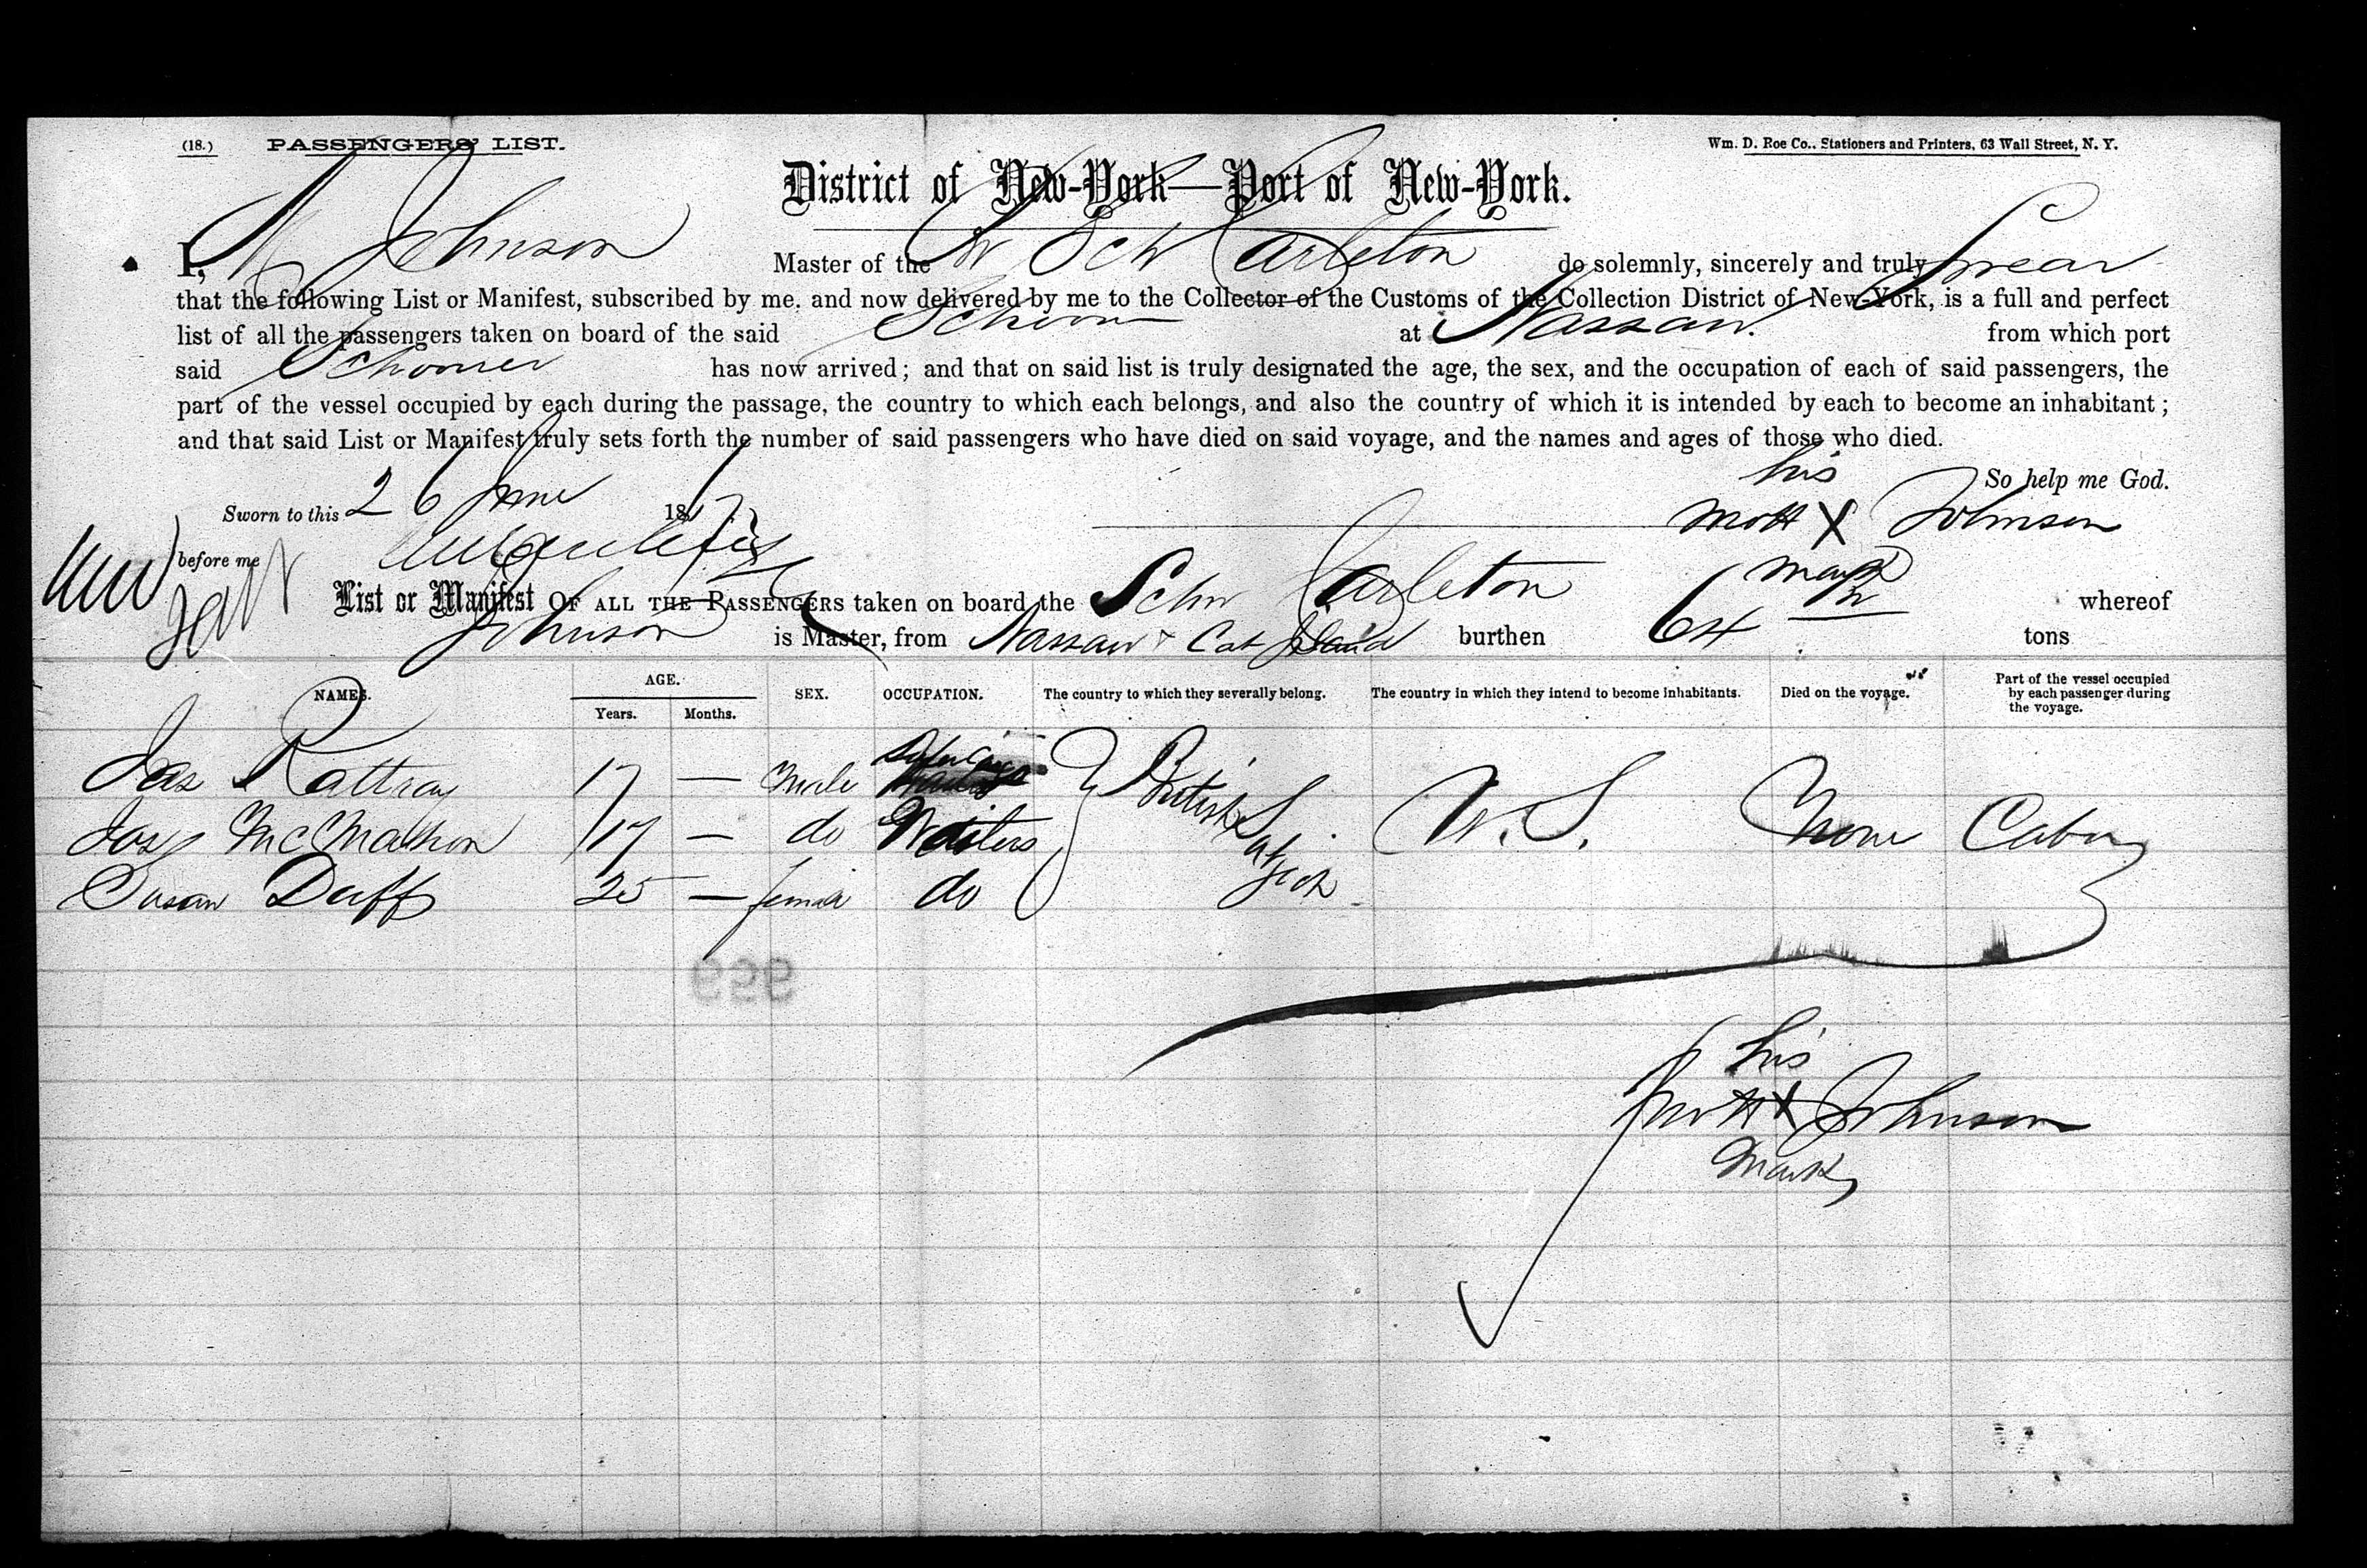 (18.) PASSENGERS' LIST. Wm. D. Roe Co., Stationers and Printers, 63 Wall Street, N. Y.
District of New-York—Port of New-York.
I, M Johnson Master of the Sch Carleton do solemnly, sincerely and truly Swear
that the following List or Manifest, subscribed by me, and now delivered by me to the Collector of the Customs of the Collection District of New-York, is a full and perfect
list of all the passengers taken on board of the said Schoon at Nassau. from which port
said Schooner has now arrived; and that on said list is truly designated the age, the sex, and the occupation of each of said passengers, the
part of the vessel occupied by each during the passage, the country to which each belongs, and also the country of which it is intended by each to become an inhabitant;
and that said List or Manifest truly sets forth the number of said passengers who have died on said voyage, and the names and ages of those who died.
his So help me God.
Sworn to this 26 June 18 Mott X Johnson
before me mark
List or Manifest OF ALL THE PASSENGERS taken on board the Schr Carleton whereof
Johnson is Master, from Nassau & Cat Island burthen 64 tons
NAMES. AGE. Years. Months. SEX. OCCUPATION. The country to which they severally belong. The country in which they intend to become inhabitants. Died on the voyage. Part of the vessel occupied by each passenger during the voyage.
Jas Rattray 17 — Male
Jas McMahon 17 — do Waiters British Subjects U.S. None Cabin
Susan Duff 25 — female do
999
his
Mott X Johnson
Mark